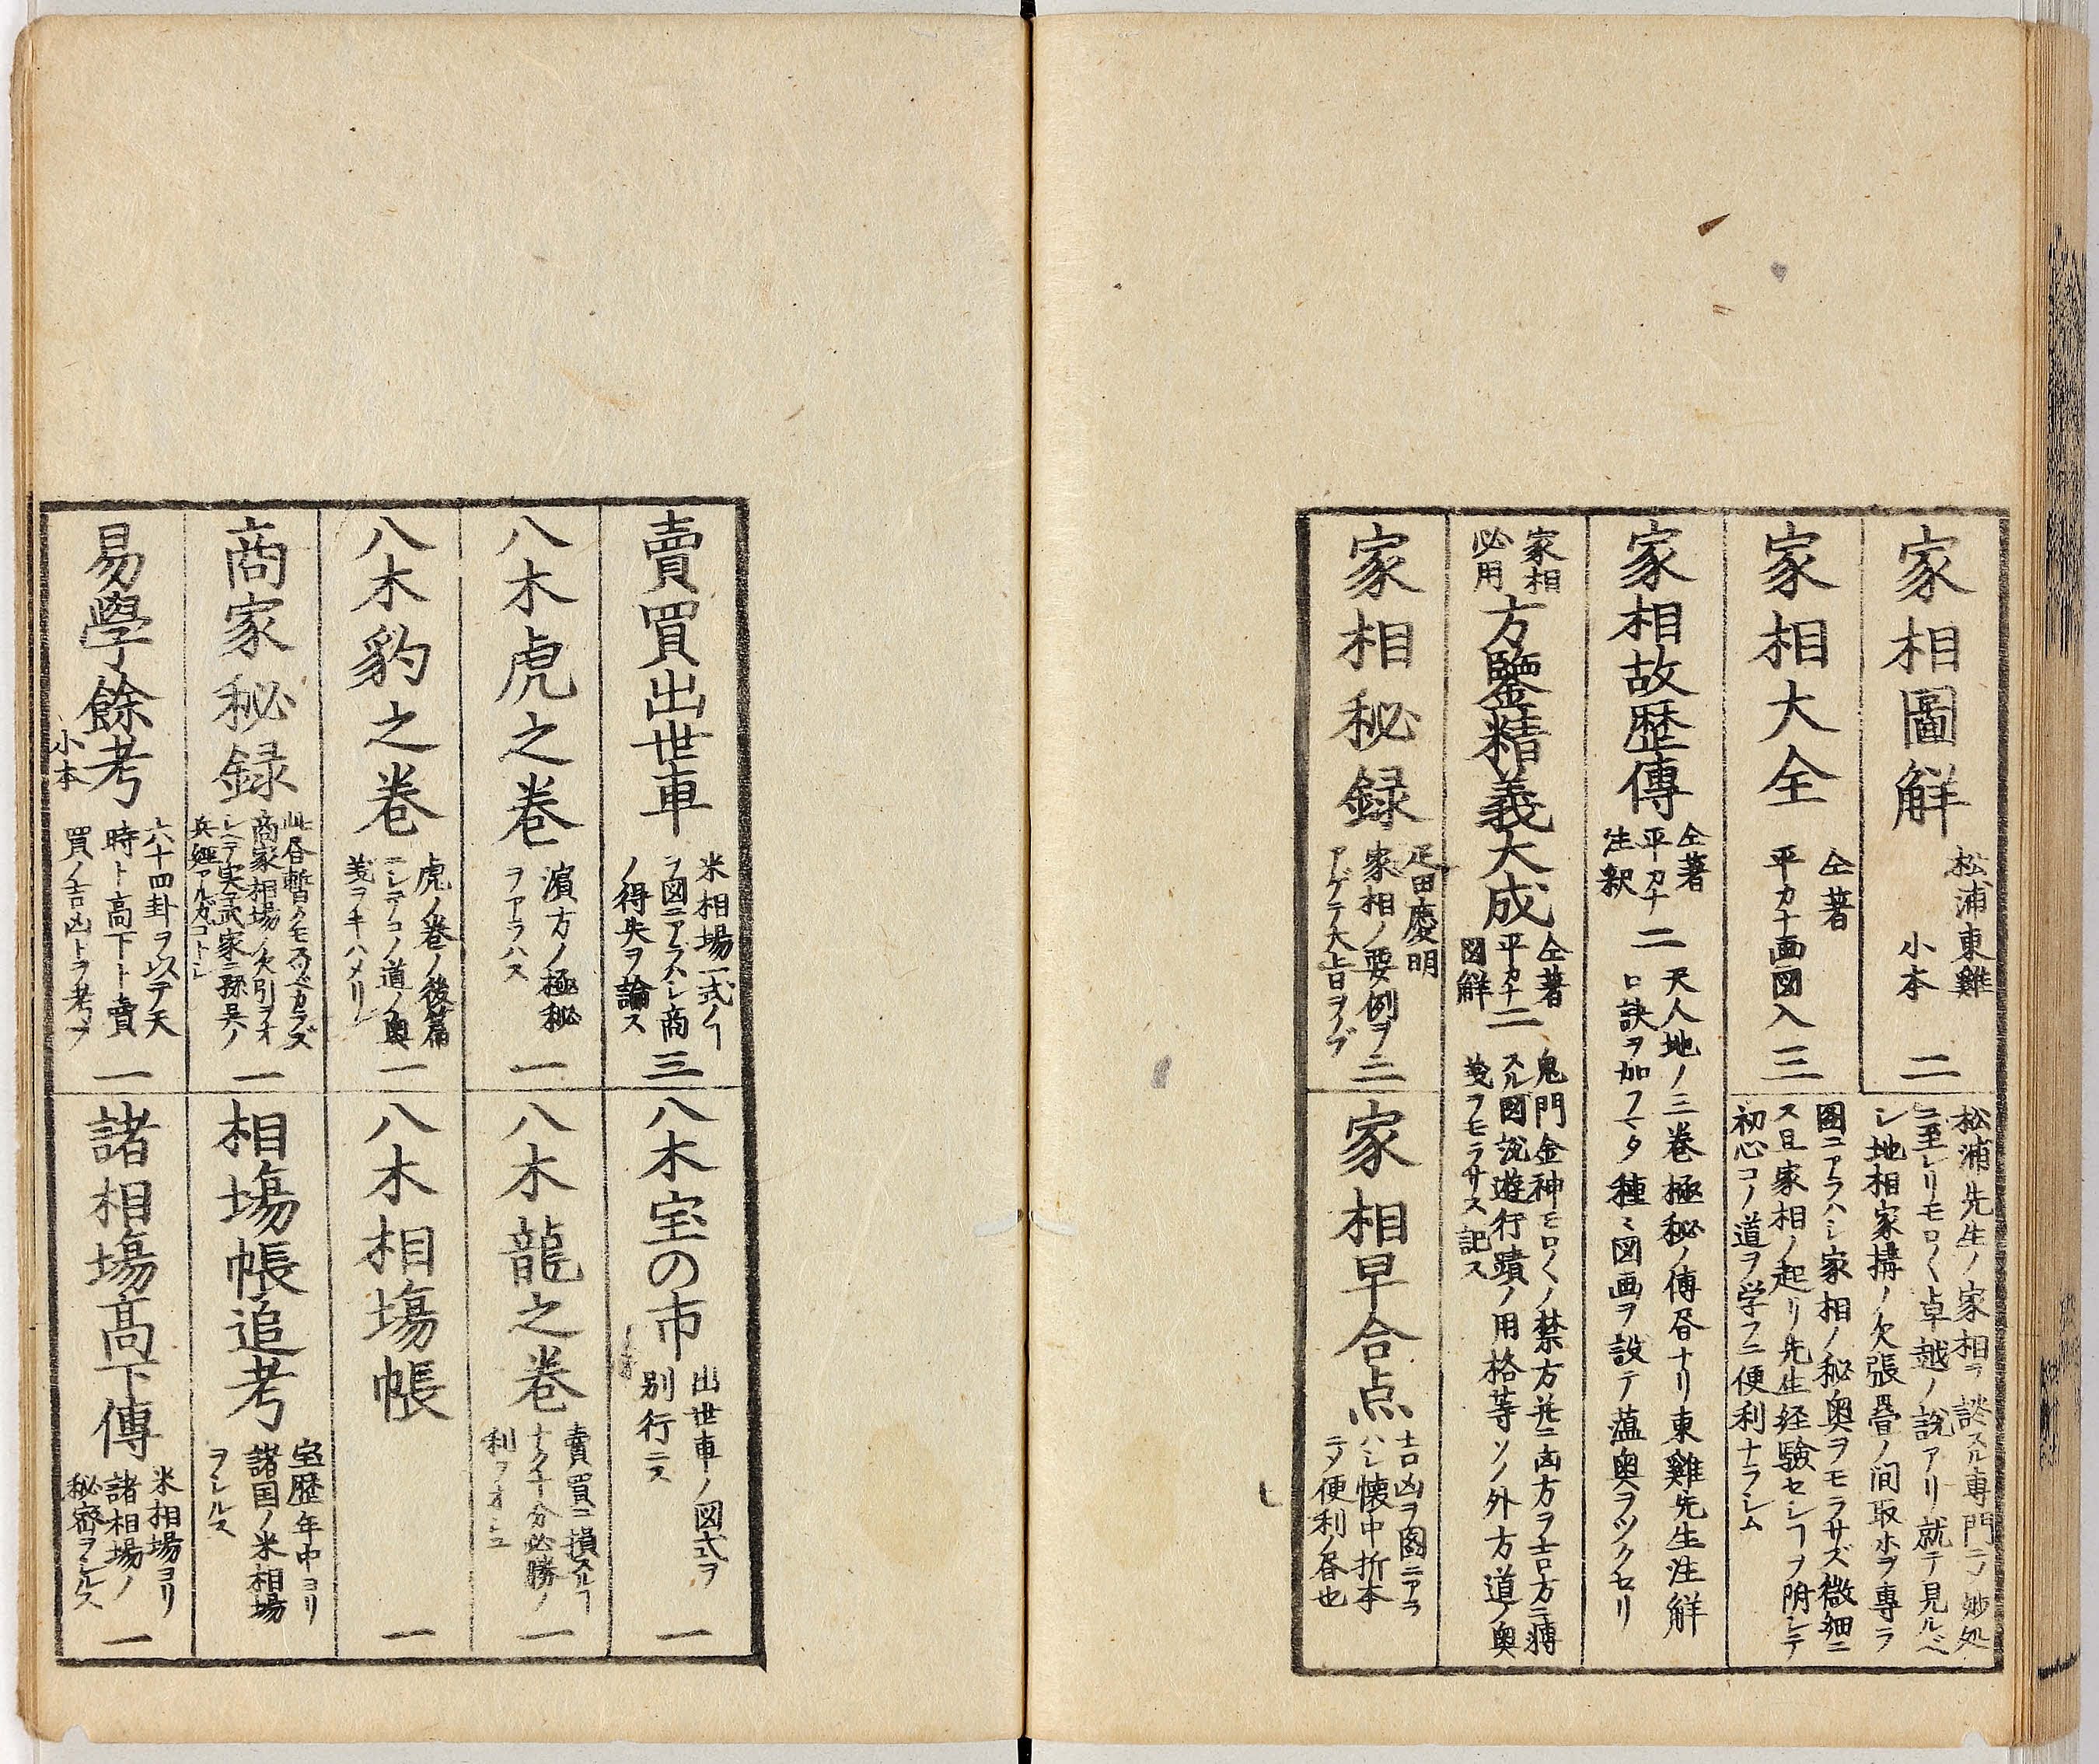 家相圖解
松浦東雞
小本
二
松浦先生ノ家相ヲ談スル専門ニヲ妙処
ニ至レリモロ〱卓越ノ説アリ就テ見ルベ
シ地相家構ノ欠張畳ノ间取ホヲ專ラ
家相大全
仝著
平カナ画図入
三
圖ニアラハシ家相ノ秘奥ヲモラサズ微細ニ
ス且家相ノ起リ先生経験セシヿヲ附シテ
初心コノ道ヲ学フニ便利ナラシム
家相故歴傳
仝著
平カナ
注釈
二
天人地ノ三巻極秘ノ傳昏ナリ東雞先生注解
口訣ヲ加フマタ種〻図画ヲ設テ蘊奥ヲツクセリ
家相
必用
方鑒精義大成
仝著
平カナ
図解
二
鬼門金神モロ〱ノ禁方并ニ凶方ヲ吉方ニ轉
スル図説遊行蹟ノ用格等ソノ外方道ノ奥
義ヲモラサス記ス
家相秘録
疋田慶明
家相ノ要例ヲ
アゲテ大旨ヲイフ
三
家相早合点
吉凶ヲ圖ニアラ
ハシ懐中折本
ニメ便利ノ昏也
賣買出世車
米相場一式ノヿ
ヲ図ニアラハシ商
ノ得失ヲ論ス
三
八木宝の市
出世車ノ図式ヲ
別行ニス
一
八木虎之巻
濵方ノ極秘
ヲアラハス
一
八木龍之巻
賣買ニ損スルヿ
ナク十分必勝ノ
利ヲオシユ
一
八木豹之巻
虎ノ巻ノ後篇
ニシテコノ道ノ奥
義ヲキハメリ
一
八木相場帳
一
商家秘録
此昏暫クモ
商家相場ノ欠引ヲオ
シヘテ実ニ武家ニ孫呉ノ
兵經アルガゴトシ
一
相塲帳追考
宝歴年中ヨリ
諸国ノ米相場
ヲシルス
易學餘考
小本
六十四卦ヲ以テ天
時ト高下ト賣
買ノ吉凶トヲ考フ
一
諸相塲髙下傳
米相場ヨリ
諸相場ノ
秘密ヲシルス
一